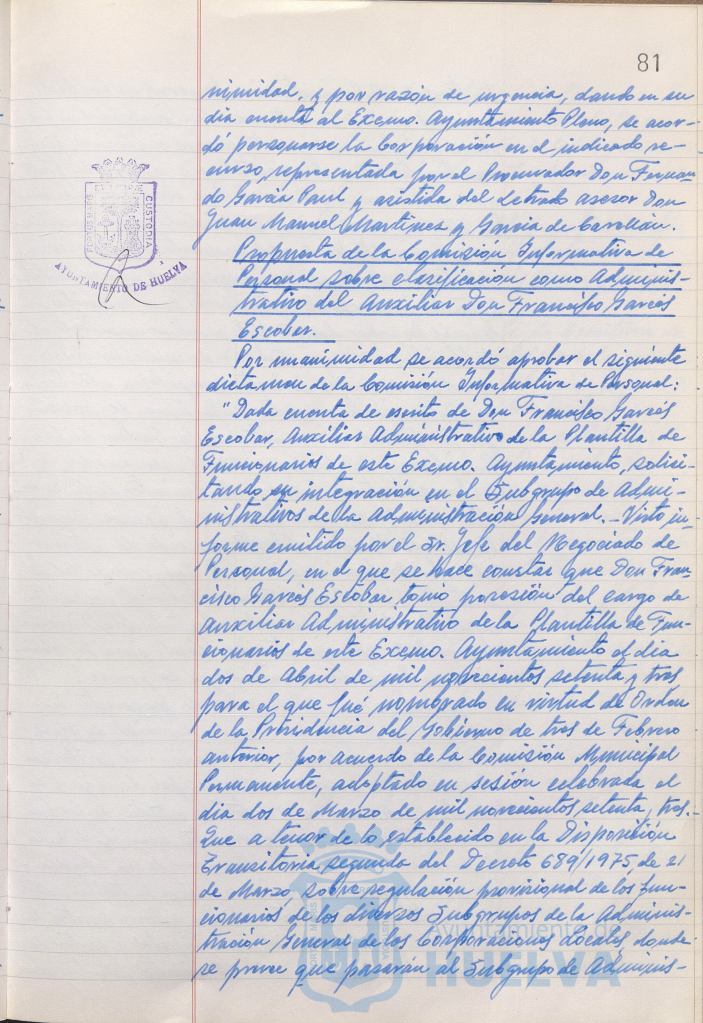 81
nimidad, y por razón de urgencia, dando en su
día cuenta al Excmo. Ayuntamiento Pleno, se acor-
dó personarse la Corporación en el indicado re-
curso, representada por el Procurador Don Fernan-
do García Paul y asistida del Letrado asesor Don
Juan Manuel Martínez y García de
Propuesta de la Comisión Informativa de
Personal sobre clasificación como Adminis-
trativo del Auxiliar Don Francisco Garcés
Escobar.
Por unanimidad se acordó aprobar el siguiente
dictamen de la Comisión Informativa de Personal:
"Dada cuenta de escrito de Don Francisco Garcés
Escobar, Auxiliar Administrativo de la Plantilla de
Funcionarios de este Excmo. Ayuntamiento, solici-
tando su integración en el Subgrupo de Admi-
nistrativos de la Administración General. - Visto in-
forme emitido por el Sr. Jefe del Negociado de
Personal, en el que se hace constar que Don Fran-
cisco Garcés Escobar tomó posesión del cargo de
Auxiliar Administrativo de la Plantilla de Fun-
cionarios de este Excmo. Ayuntamiento el día
dos de Abril de mil novecientos setenta y tres
para el que fué nombrado en virtud de Orden
de la Presidencia del Gobierno de tres de Febrero
anterior, por acuerdo de la Comisión Municipal
Permanente, adoptado en sesión celebrada el
día dos de Marzo de mil novecientos setenta y tres.-
Que a tenor de lo establecido en la Disposición
Transitoria segunda del Decreto 689/1975, de 21
de Marzo, sobre regulación provisional de los fun-
cionarios de los diversos Subgrupos de la Adminis-
tración General de las Corporaciones Locales, donde
se preve que pasarán al Subgrupo de Adminis-
CUSTODIA
AYUNTAMIENTO DE HUELVA
Ayuntamiento de
HUELVA